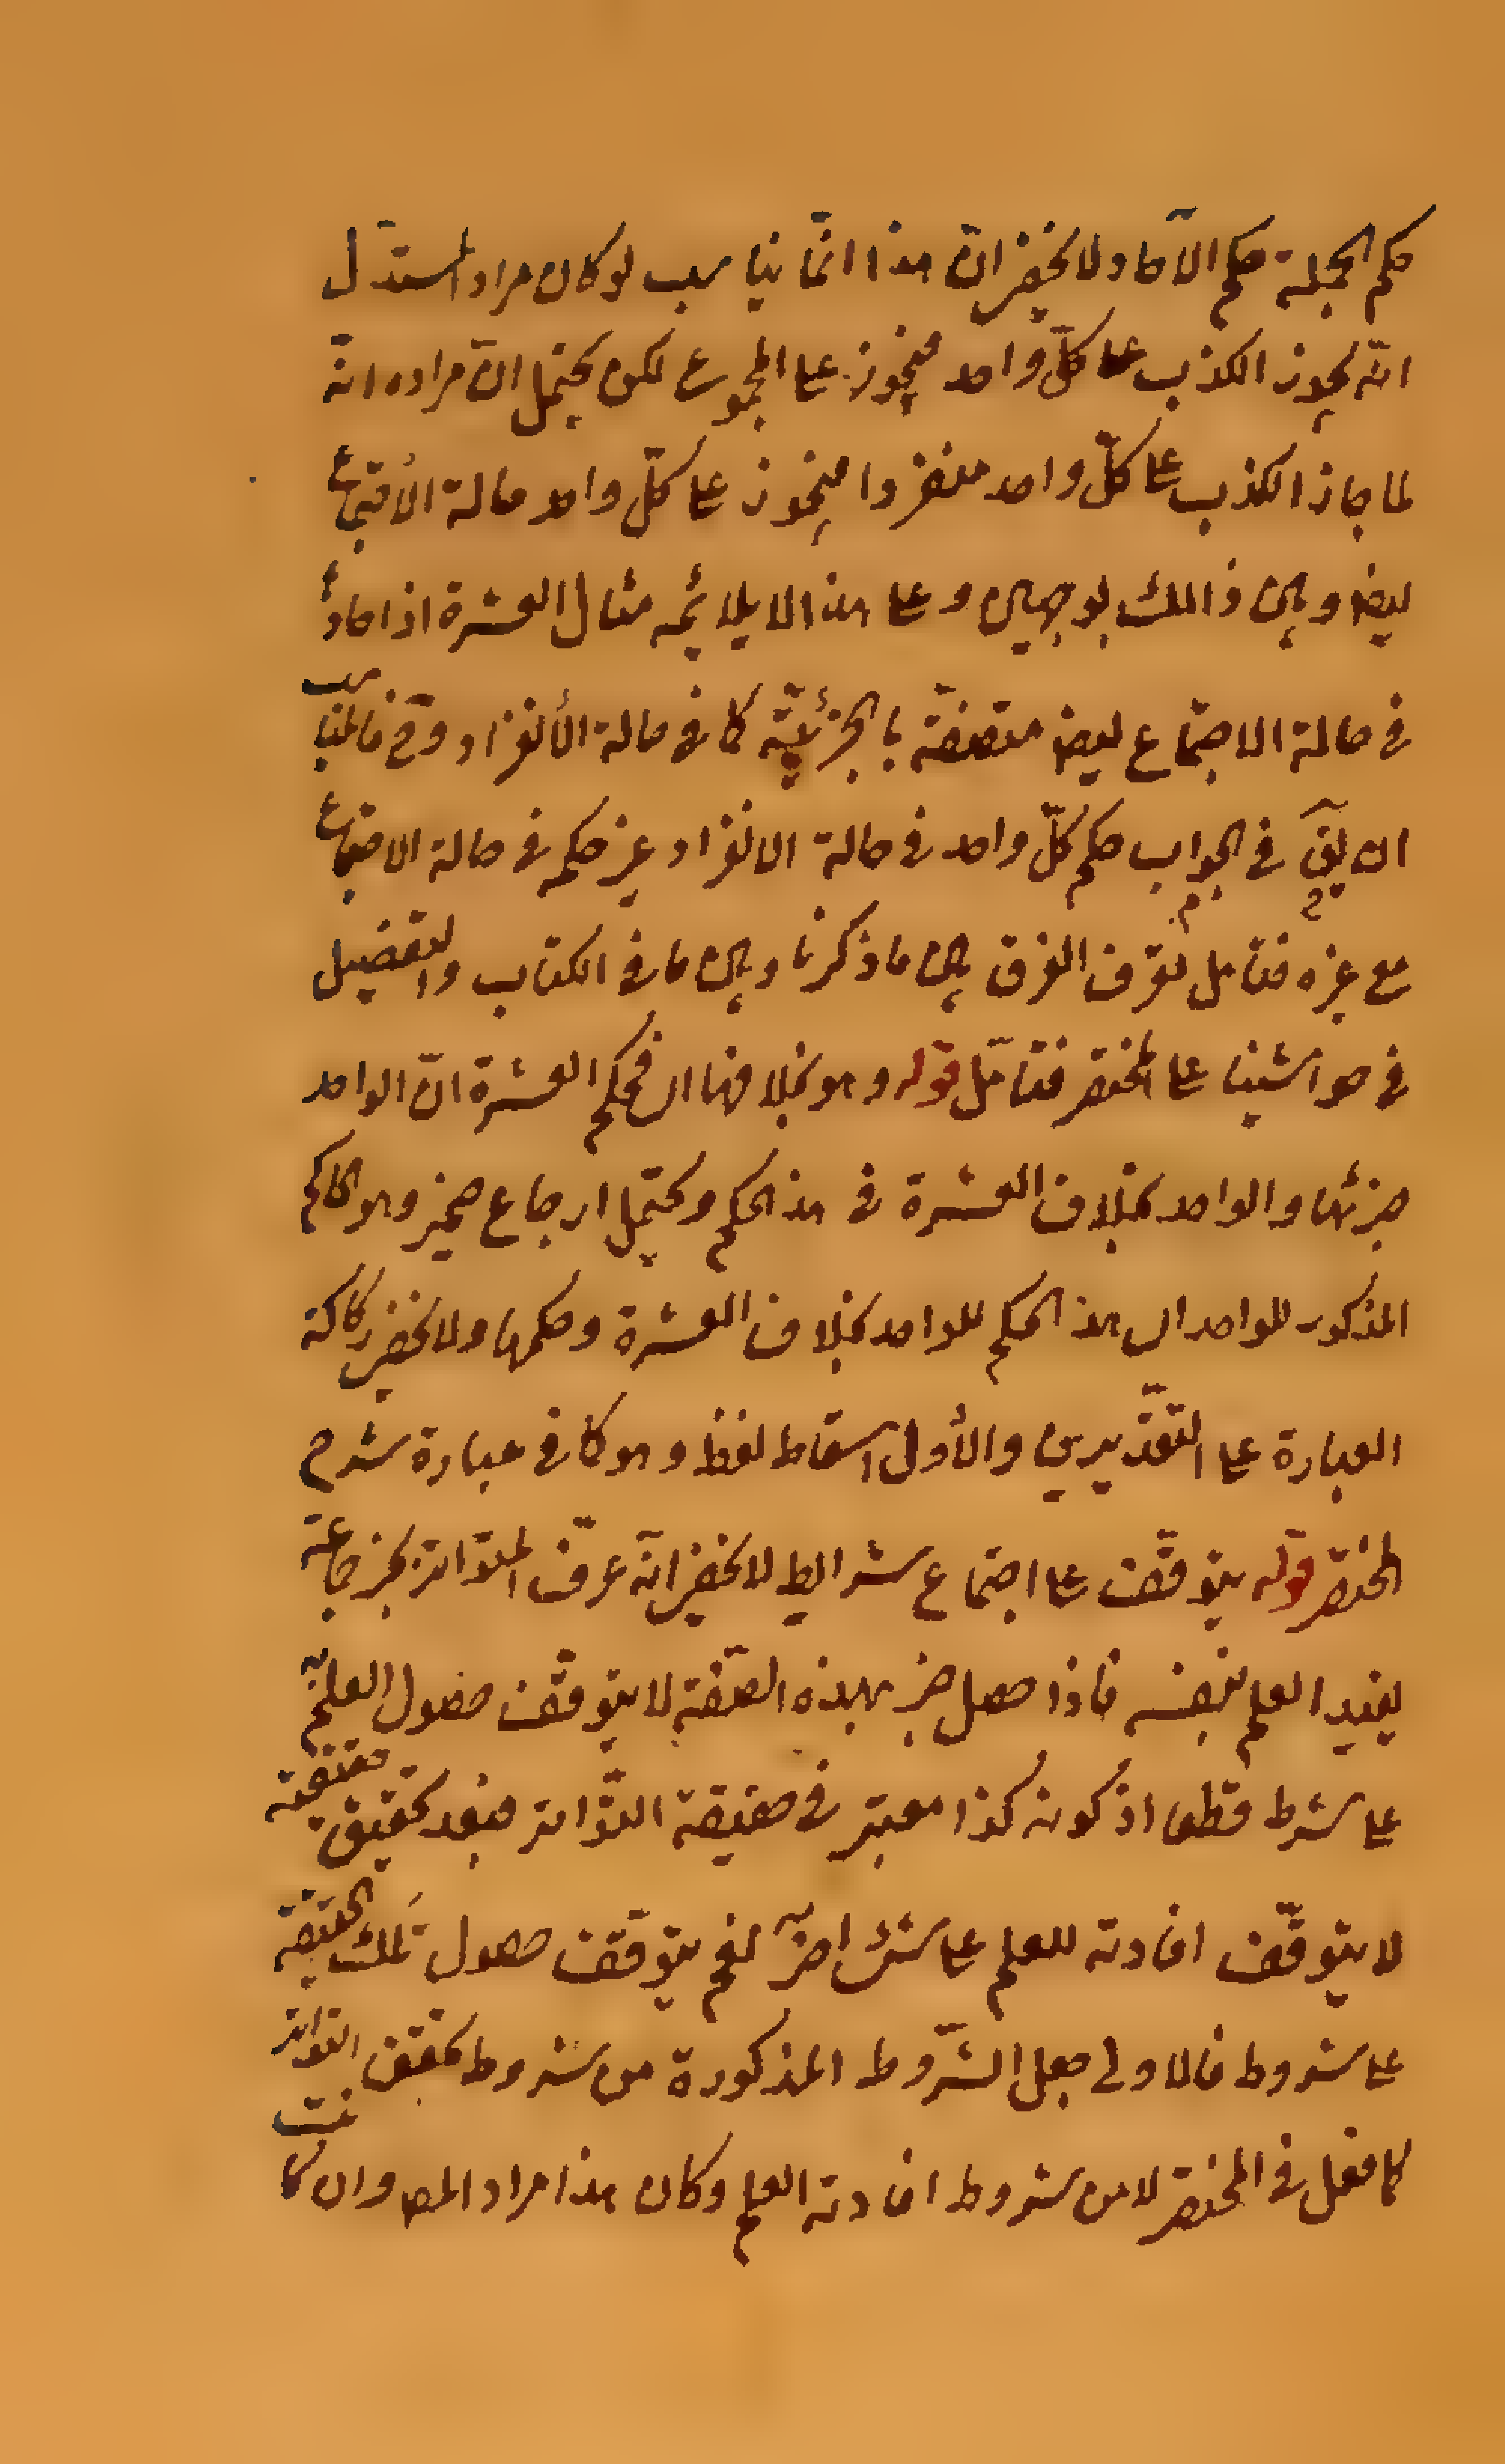 حكم الجملة حكم الآحاد ولا يخفى انّ هذا انّما يناسب لو كان مراد المستدّل
انّه يجوز الكذب على كلّ واحد فيجوز على المجموع لكن يحتمل انّ مراده انّه
لما جاز الكذب على كلّ واحد منفردا فيجوز على كلّ واحد حالة الأجتماع
ايضا وبين ذالك بوجهين وعلى هذا لا يلائمه مثال العشرة اذ احادُ
في حالة الاجتماع ايضا متصفة بالجزئيّة كما في حالة الأنفراد وح فالمناسب
ان يقَ في الجواب حكم كلّ واحد في حالة الانفراد غير حكمه في حالة الاجتماع
مع غيره فتامل تعرف الفرق بين ما ذكرنا وبين ما في الكتاب والتفصيل
في حواشينا على المختصر فتامّل قوله وهو بخلافها اى فحكم العشرة انّ الواحد
جزئها والواحد بخلاف العشرة في هذ الحكم ويحتمل ارجاع ضمير وهو الحاكم
المذكور للواحد اى هذ الحكم للواحد بخلاف العشرة وحكمها ولا يخفى ركاكة
العبارة على التقديرين والأول اسقاط لفظ وهو كما في عبارة شرح
المختصر قوله يتوقّف على اجتماع شرايط لا يخفى انّه عرّف المتواتر بخبر جماعة
يفيد العلم بنفسه فاذا حصل خبر بهذه الصّفة لا يتوقّف حصول العلم به
على شرط قطعا اذ كونه كذا معتبر في حقيقة التّواتر فبعد تحقيق حقيقته
لا يتوقّف افادته للعلم على شئ اخر نعم يتوقّف حصول تلك الحقيقة
على شروط فالاولى جعل الشّروط المذكورة من شروط تحقّق التواتر
كما فعل في المختصر لا من شروط افادته العلم وكان هذا مراد المص وان كانت